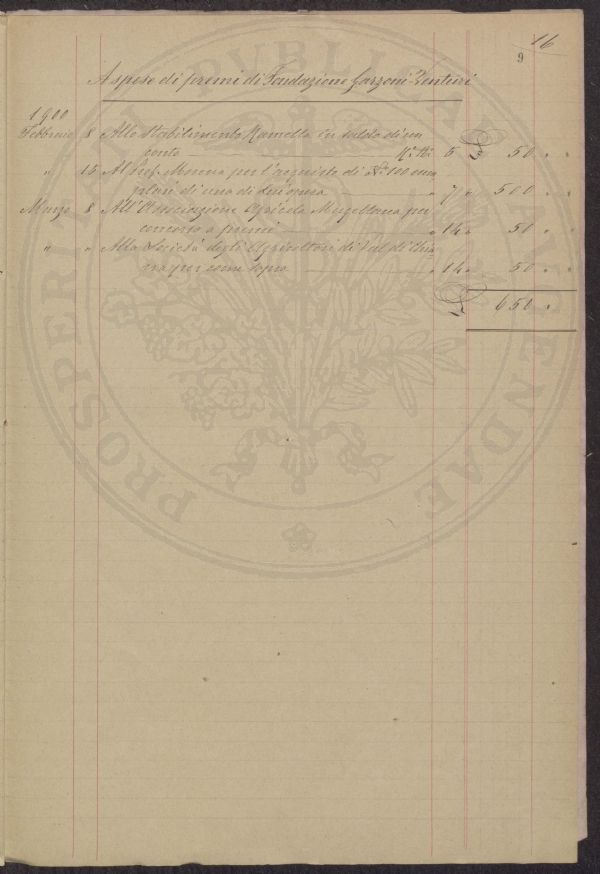 16
9
A spese di premi di Fondazione Garzoni Venturi
1900
Febbraio 8 Allo Stabilimento Ramella in saldo di un
conto 5 £ 50 " "
" 15 Al Prof. per l'acquisto di No. 100
di una di 7 " 500 " "
Marzo 8 All'Associazione Agricola Mugellana per
concorso a premi " 14 " 50 " "
" " Alla Società degli Agricoltori di Val di Chia
na per come sopra " 14 " 50 " "
£ 650 "
PROSPERITATI PUBLICAE AUGENDAE